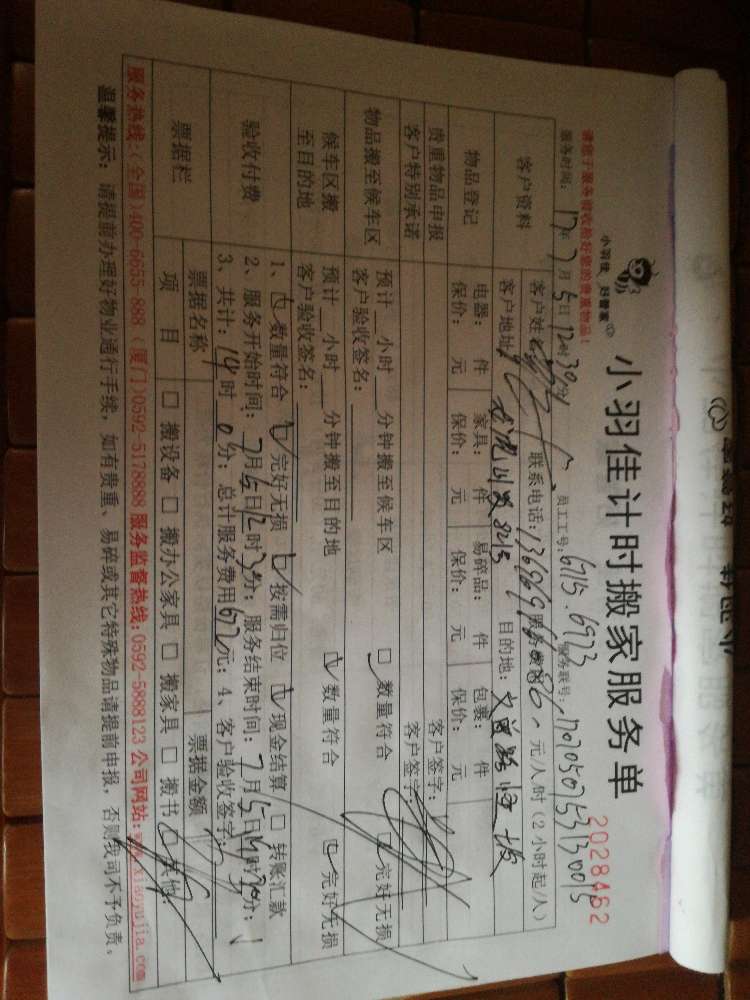 小羽佳计时搬家服务单
小羽佳 好管家
2028462
请您于服务前收拾好您的贵重物品!
服务时间: 17年7月5日12时30分 员工工号: 6715.6923 服务联号:
客户资料
客户姓名 联系电话: 元/人/时(2小时起/人)
客户地址: 目的地:
物品登记
电器: 件 家具: 件 易碎品: 件 包裹: 件
保价: 元 保价: 元 保价: 元 保价: 元
贵重物品申报 客户签字:
客户特别承诺 客户签字:
物品搬至候车区
预计 小时 分钟搬至候车区 □ 数量符合 □ 完好无损
客户验收签名:
候车区搬至目的地
预计 小时 分钟搬至目的地 □ 数量符合 □ 完好无损
客户验收签名:
验收付费
1、□ 数量符合 □ 完好无损 □ 按需归位 □ 现金结算 □ 转账汇款
2、服务开始时间: 7月5日12时30分; 服务结束时间: 7月5日14时30分;
3、共计: 14时0分; 总计服务费用672元; 4、客户验收签字:
票据栏
票据名称 票据金额
项目 □ 搬设备 □ 搬办公家具 □ 搬家具 □ 搬书 □ 其他:
服务热线:(全国)400-6655-888 (厦门)0592-5178888 服务监督热线:0592-5888123 公司网站:www.xiaoyujia.com
温馨提示: 请提前办理好物业通行手续, 如有贵重、易碎或其它特殊物品请提前申报, 否则我司不予负责。